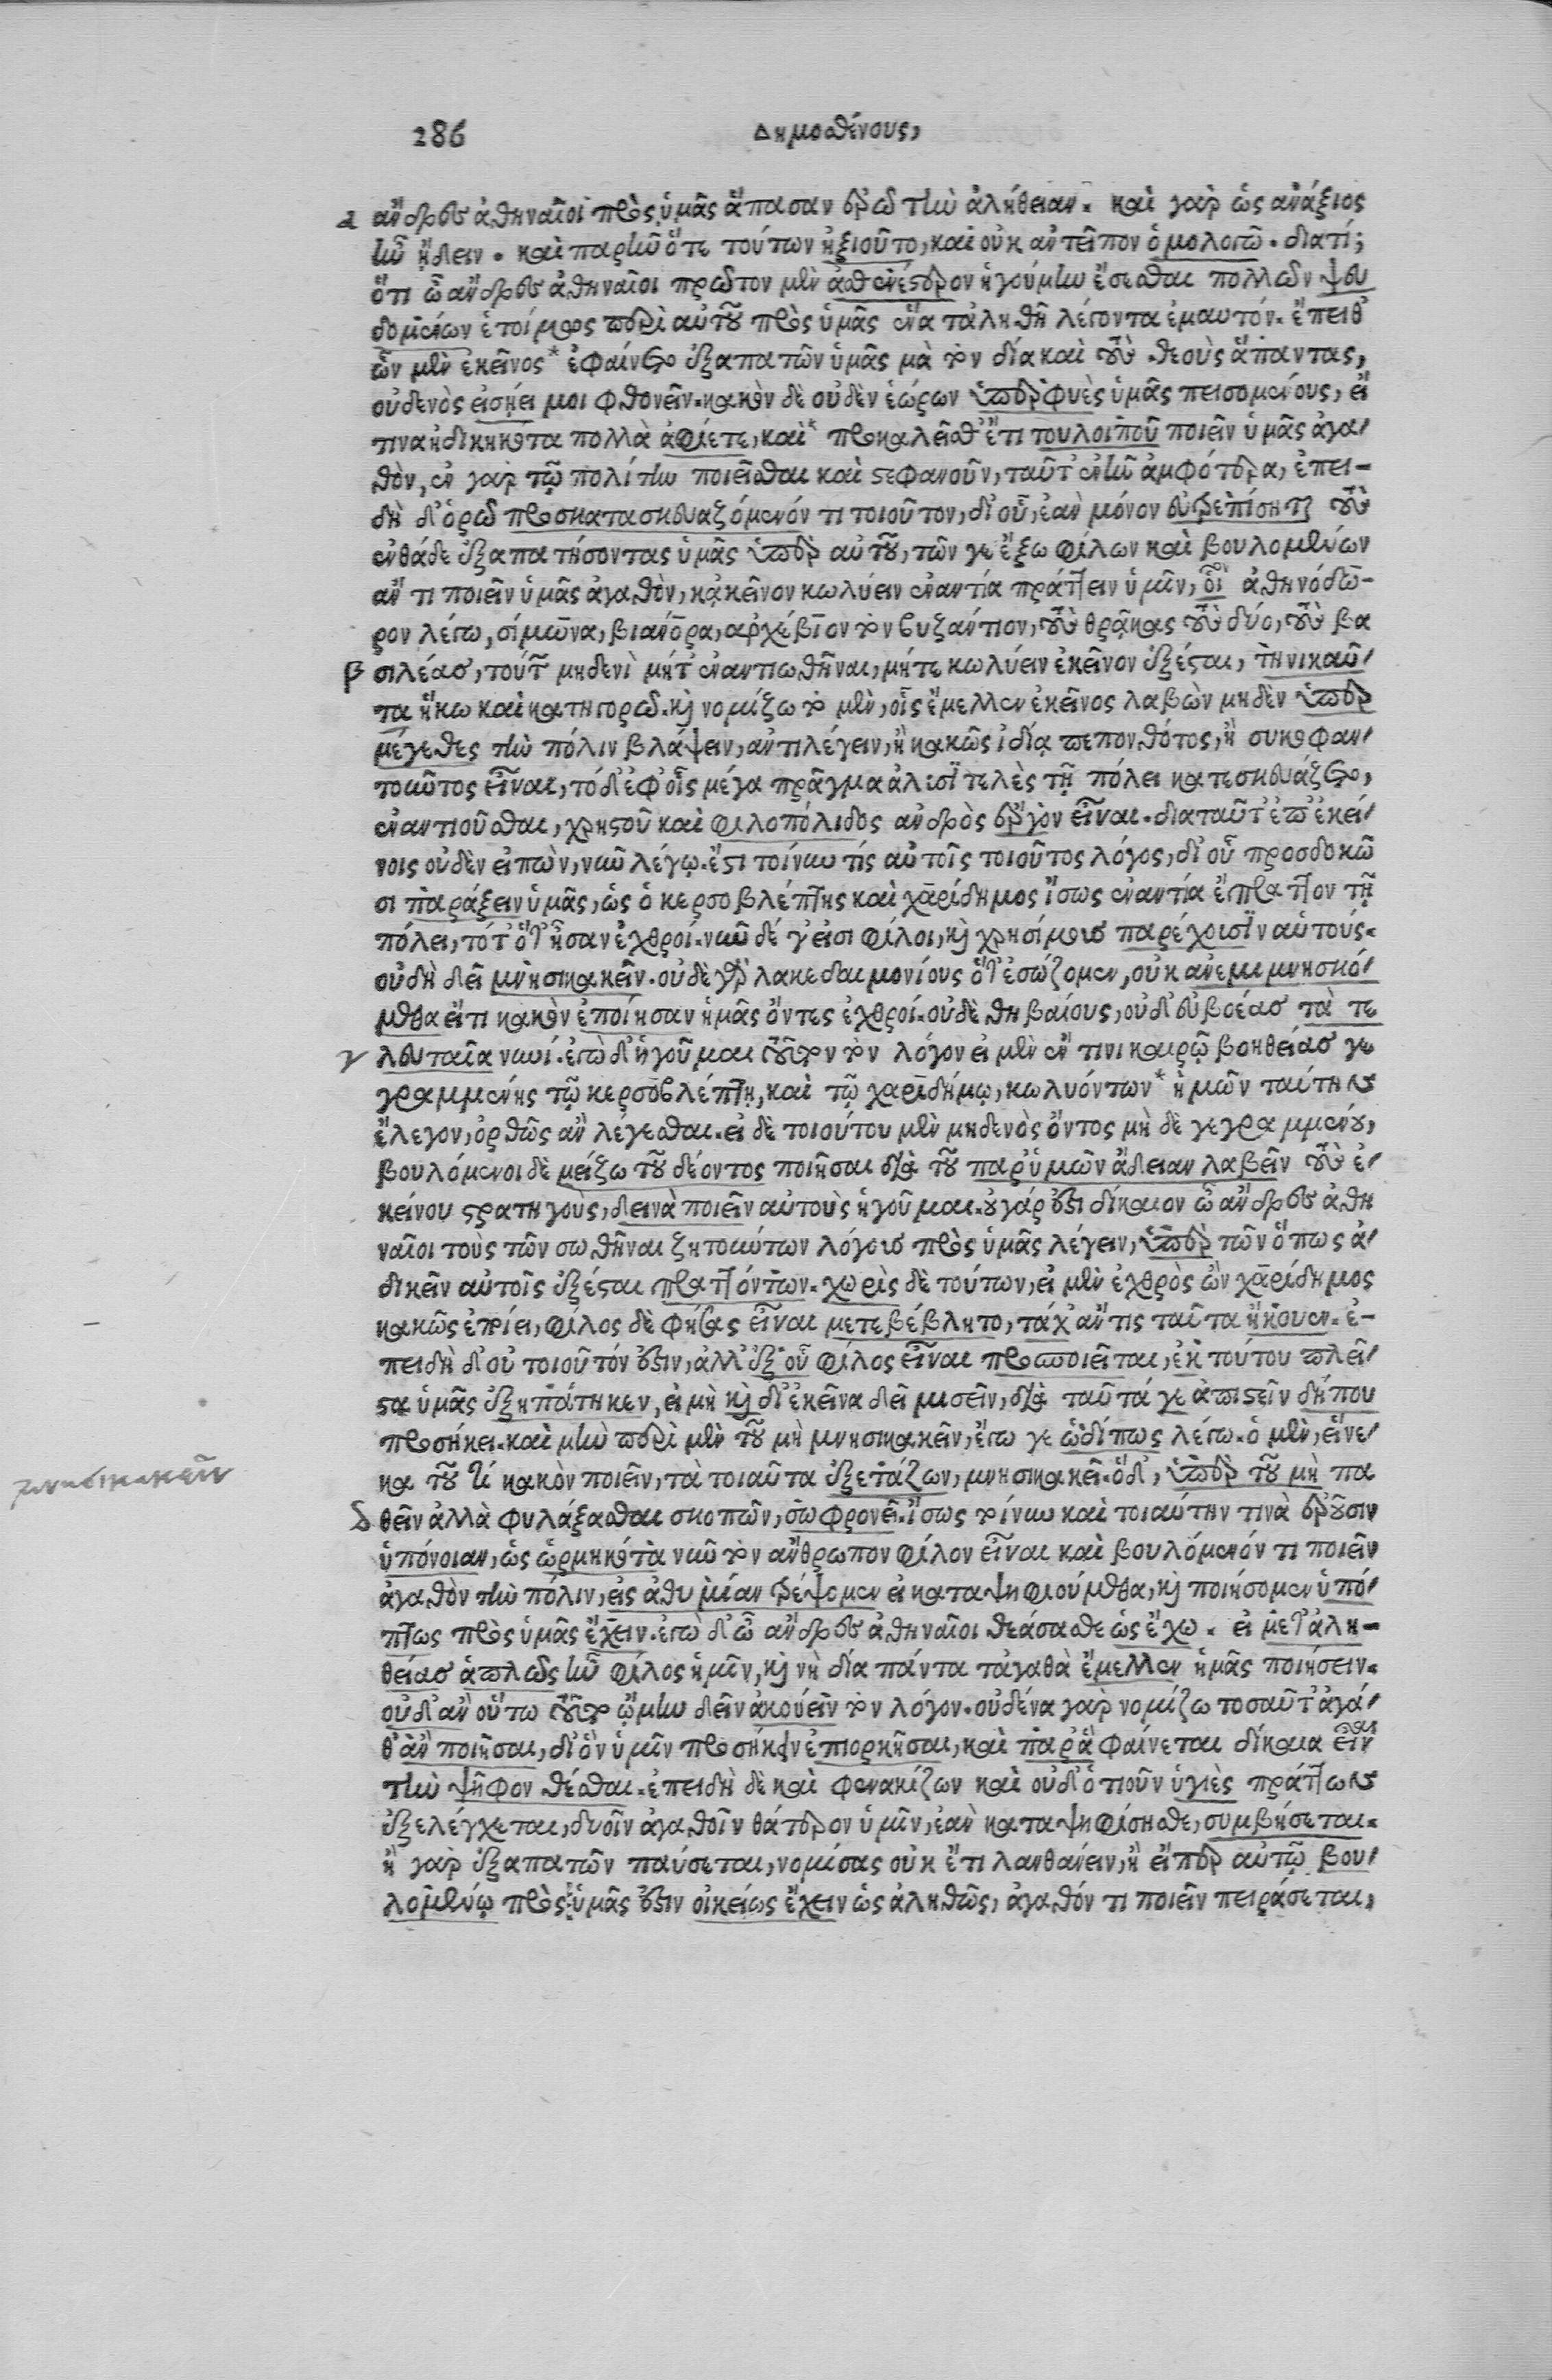 286 Δημοσθένους,
α ἄνδρες ἀθηναῖοι πρὸς ὑμᾶς ἅπασαν ἐρῶ τὴν ἀλήθειαν. καὶ γὰρ ὡς ἀνάξιος
ἦν ᾔδειν. καὶ παρῆν ὅτε τούτων ἠξιοῦτο, καὶ οὐκ ἀντεῖπον ὁμολογῶ. διατί;
ὅτι ὦ ἄνδρες ἀθηναῖοι πρῶτον μὲν ἀσθενέστερον ἡγούμην ἔσεσθαι πολλῶν ψευ
δομένων ἑτοίμως περὶ αὐτοῦ πρὸς ὑμᾶς ἕνα τἀληθῆ λέγοντα ἐμαυτόν. ἔπειθ᾽
ὧν μὲν ἐκεῖνος* ἐφαίνετο ἐξαπατῶν ὑμᾶς μὰ τὸν δία καὶ τοὺς θεοὺς ἅπαντας,
οὐδενὸς εἰσῄει μοι φθονεῖν. κακὸν δὲ οὐδὲν ἑώρων ὑπερφυὲς ὑμᾶς πεισομένους, εἴ
τινα ἠδικηκότα πολλὰ ἀφίετε, καὶ* προκαλεῖσθ᾽ ἔτι τουλοιποῦ ποιεῖν ὑμᾶς ἀγα/
θόν, ἐν γὰρ τῷ πολίτην ποιεῖσθαι καὶ στεφανοῦν, ταῦτ᾽ ἐνῆν ἀμφότερα, ἐπει-
δὴ δ᾽ ὁρῶ προσκατασκευαζόμενόν τι τοιοῦτον, δι᾽ οὗ, ἐὰν μόνον εὐτρεπίσηται τοὺς
ἐνθάδε ἐξαπατήσοντας ὑμᾶς ὑπὲρ αὐτοῦ, τῶν γε ἔξω φίλων καὶ βουλομένων
ἄν τι ποιεῖν ὑμᾶς ἀγαθόν, κἀκεῖνον κωλύειν ἐναντία πράττειν ὑμῖν, οἷον ἀθηνόδω-
ρον λέγω, σίμωνα, βιάνορα, ἀρχέβιον τὸν βυζάντιον, τοὺς θρᾷκας τοὺς δύο, τοὺς βα
β σιλέας, τούτων μηδενὶ μήτ᾽ ἐναντιωθῆναι, μήτε κωλύειν ἐκεῖνον ἐξέσται, τηνικαῦ/
τα ἥκω καὶ κατηγορῶ. καὶ νομίζω τὸ μὲν, οἷς ἔμελλεν ἐκεῖνος λαβὼν μηδὲν ὑπὲρ
μέγεθες τὴν πόλιν βλάψειν, ἀντιλέγειν, ἢ κακῶς ἰδίᾳ πεπονθότος, ἢ συκοφαν/
τοῦντος εἶναι, τὸ δ᾽ ἐφ᾽ οἷς μέγα πρᾶγμα ἀλυσιτελὲς τῇ πόλει κατεσκευάζετο,
ἐναντιοῦσθαι, χρηστοῦ καὶ φιλοπόλιδος ἀνδρὸς ἔργον εἶναι. διαταῦτ᾽ ἐπ᾽ ἐκεί/
νοις οὐδὲν εἰπὼν, νῦν λέγω. ἔστι τοίνυν τίς αὐτοῖς τοιοῦτος λόγος, δι᾽ οὗ προσδοκῶ
σι παράξειν ὑμᾶς, ὡς ὁ κερσοβλέπτης καὶ χαρίδημος ἴσως ἐναντία ἔπραττον τῇ
πόλει, τότ᾽ ὅτ᾽ ἦσαν ἐχθροί. νῦν δέ γ᾽ εἰσι φίλοι, καὶ χρησίμους παρέχουσιν αὑτούς.
οὐδὴ δεῖ μνησικακεῖν. οὐδὲ γὰρ λακεδαιμονίους ὅτ᾽ ἐσώζομεν, οὐκ ἀνεμιμνησκό/
μεθα εἴ τι κακὸν ἐποίησαν ἡμᾶς ὄντες ἐχθροί. οὐδὲ θηβαίους, οὐδ᾽ εὐβοέας τὰ τε
γ λευταῖα νυνί. ἐγὼ δ᾽ ἡγοῦμαι τοῦτον τὸν λόγον εἰ μὲν ἔν τινι καιρῷ βοηθείας γε
γραμμένης τῷ κερσοβλέπτῃ, καὶ τῷ χαριδήμῳ, κωλυόντων* ἡμῶν ταύτην
ἔλεγον, ὀρθῶς ἂν λέγεσθαι. εἰ δὲ τοιούτου μὲν μηδενὸς ὄντος μὴ δὲ γεγραμμένου,
βουλόμενοι δὲ μείζω τοῦ δέοντος ποιῆσαι διὰ τοῦ παρ᾽ ὑμῶν ἄδειαν λαβεῖν τοὺς ἐ/
κείνου στρατηγοὺς, δεινὰ ποιεῖν αὐτοὺς ἡγοῦμαι. οὐ γάρ ἐστι δίκαιον ὦ ἄνδρες ἀθη
ναῖοι τοὺς τῶν σωθῆναι ζητούντων λόγους πρὸς ὑμᾶς λέγειν, ὑπὲρ τῶν ὅπως ἀ/
δικεῖν αὐτοῖς ἐξέσται πραττόντων. χωρὶς δὲ τούτων, εἰ μὲν ἐχθρὸς ὢν χαρίδημος
κακῶς ἐποίει, φίλος δὲ φήσας εἶναι μετεβέβλητο, τάχ᾽ ἄν τις ταῦτα ἤκουεν. ἐ-
πειδὴ δ᾽ οὐ τοιοῦτόν ἐστιν, ἀλλ᾽ ἐξ οὗ φίλος εἶναι προσποιεῖται, ἐκ τουτου πλεῖ/
στα ὑμᾶς ἐξηπάτηκεν, εἰ μὴ καὶ δι᾽ ἐκεῖνα δεῖ μισεῖν, διὰ ταῦτά γε ἀπιστεῖν δήπου
προσήκει. καὶ μὴν περὶ μὲν τοῦ μὴ μνησικακεῖν, ἔγωγε ὡδίπως λέγω. ὁ μὲν, εἵνε/
κα τοῦ τί κακὸν ποιεῖν, τὰ τοιαῦτα ἐξετάζων, μνησικακεῖ. ὁ δ᾽, ὑπὲρ τοῦ μὴ πα
μνησικακεῖν
δ θεῖν ἀλλὰ φυλάξασθαι σκοπῶν, σωφρονεῖ. ἴσως τοίνυν καὶ τοιαύτην τινὰ ἐροῦσιν
ὑπόνοιαν, ὡς ὡρμηκότα νῦν τὸν ἄνθρωπον φίλον εἶναι καὶ βουλόμενόν τι ποιεῖν
ἀγαθὸν τὴν πόλιν, εἰς ἀθυμίαν τρέψομεν εἰ καταψηφιούμεθα, καὶ ποιήσομεν ὑπό/
πτως πρὸς ὑμᾶς ἔχειν. ἐγὼ δ᾽ ὦ ἄνδρες ἀθηναῖοι θεάσασθε ὡς ἔχω. εἰ μετ᾽ ἀλη-
θείας ἁπλῶς ἦν φίλος ἡμῖν, καὶ νὴ δία πάντα τἀγαθὰ ἔμελλεν ἡμᾶς ποιήσειν.
οὐδ᾽ ἂν οὕτω τοῦτον ᾤμην δεῖν ἀκούειν τὸν λόγον. οὐδένα γὰρ νομίζω τοσαῦτ᾽ ἀγά/
θ᾽ ἂν ποιῆσαι, δι᾽ ὃν ὑμῖν προσῆκεν ἐπιορκῆσαι, καὶ παρ᾽ ἃ φαίνεται δίκαια εἶναι
τὴν ψῆφον θέσθαι. ἐπειδὴ δὲ καὶ φενακίζων καὶ οὐδ᾽ ὁτιοῦν ὑγιὲς πράττων
ἐξελέγχεται, δυοῖν ἀγαθοῖν θάτερον ὑμῖν, ἐὰν καταψηφίσησθε, συμβήσεται.
ἢ γὰρ ἐξαπατῶν παύσεται, νομίσας οὐκ ἔτι λανθάνειν, ἢ εἴπερ αὐτῷ βου/
λομένῳ πρὸς ὑμᾶς ἐστιν οἰκείως ἔχειν ὡς ἀληθῶς, ἀγαθόν τι ποιεῖν πειράσεται,